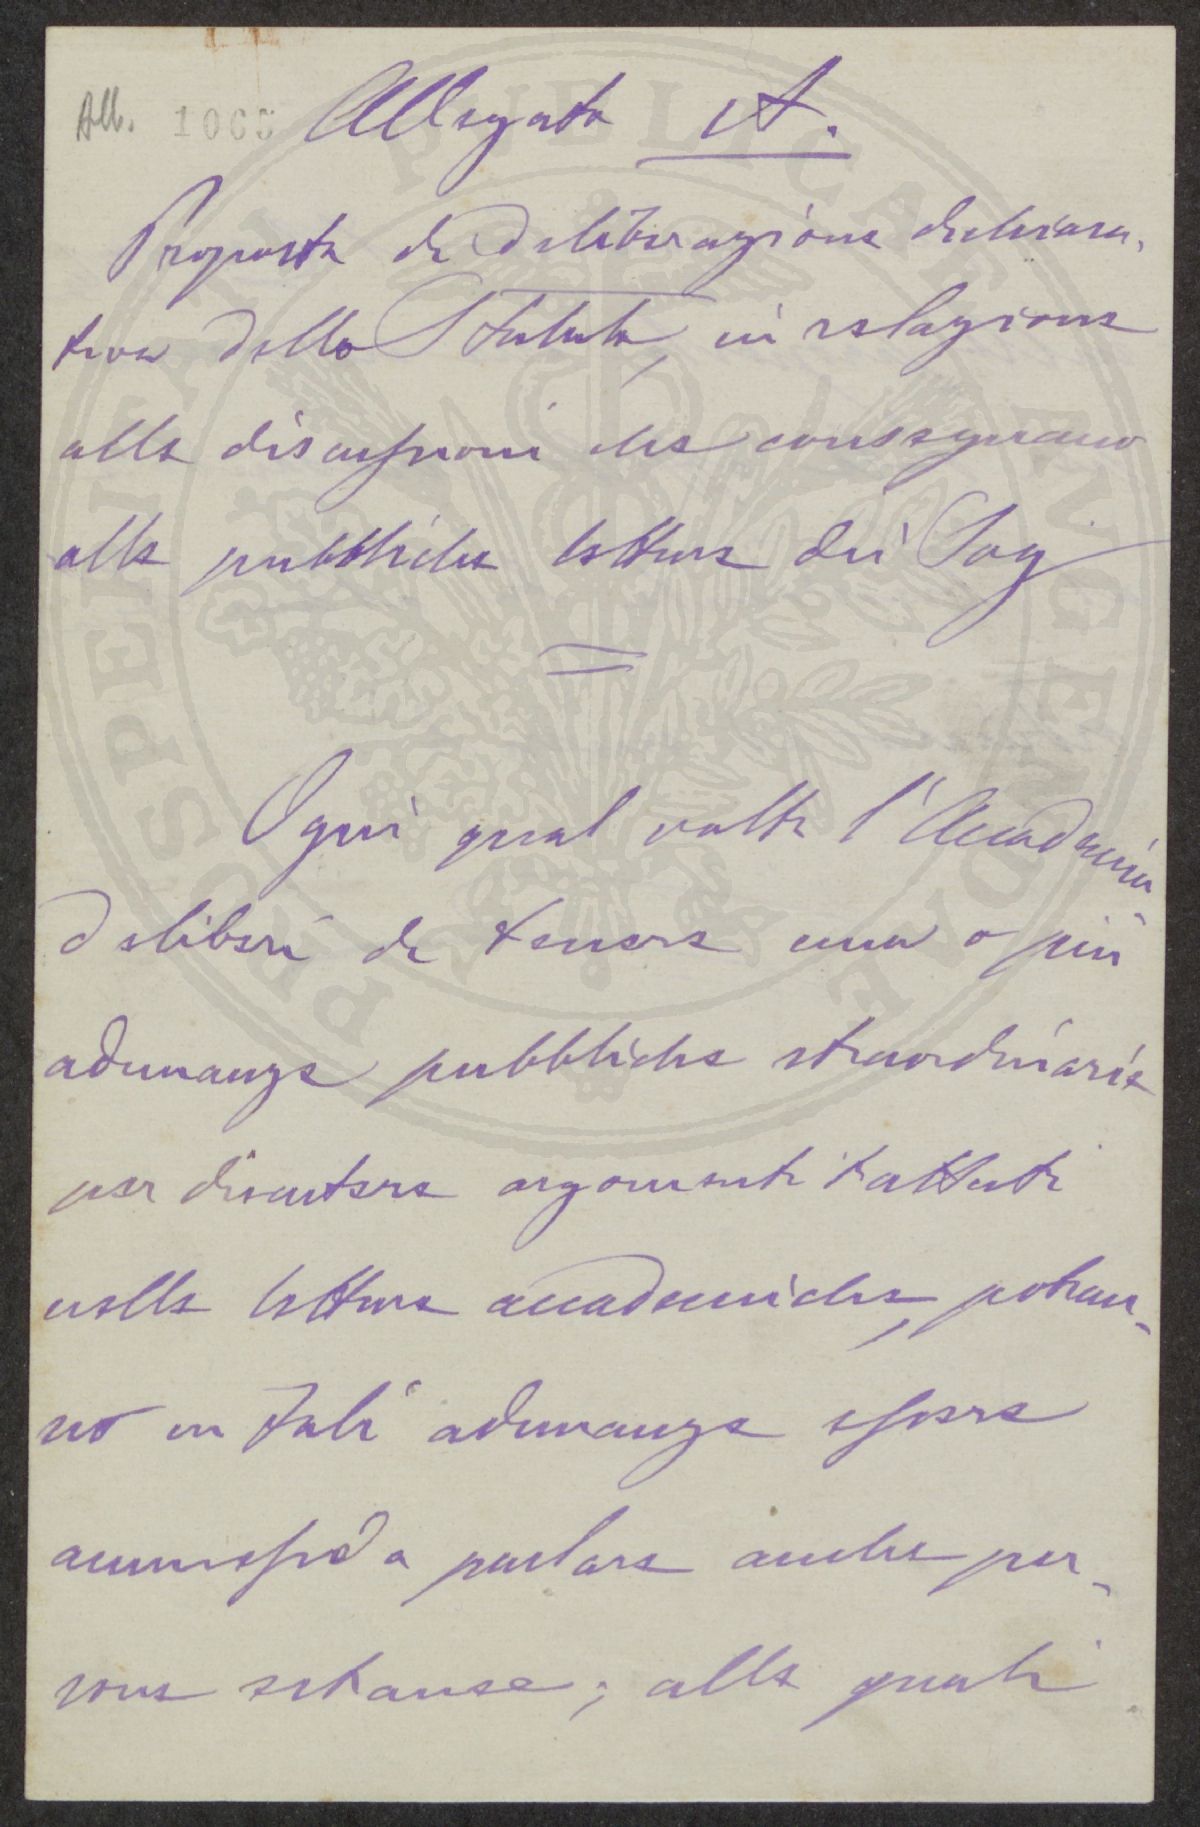 All. 1065 Allegato A.
Proposta di deliberazione dichiara-
tiva dello Statuto, in relazione
alle discussioni che conseguano
alle pubbliche letture dei Soci
Ogni qual volta l'Accademia
deliberi di tenere una o più
adunanze pubbliche straordinarie
per discutere argomenti trattati
nelle letture accademiche, potran-
no in tali adunanze essere
ammesse a parlare anche per-
sone estranee; alle quali
PROSPERITATI PUBLICAE AVGENDAE